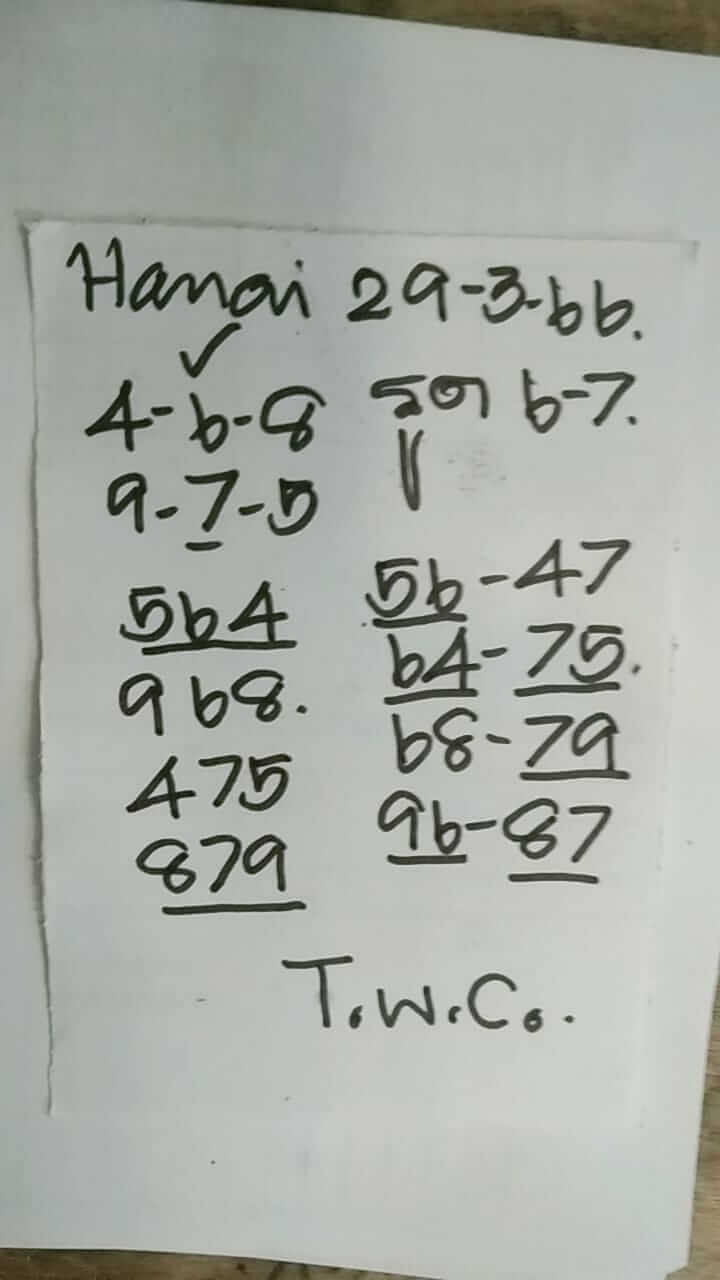 Hanoi 29-3-66.
✓
4-6-8
9-7-5
564
968.
475
879
6-7.
56-47
64-75.
68-79
96-87
T.W.C..